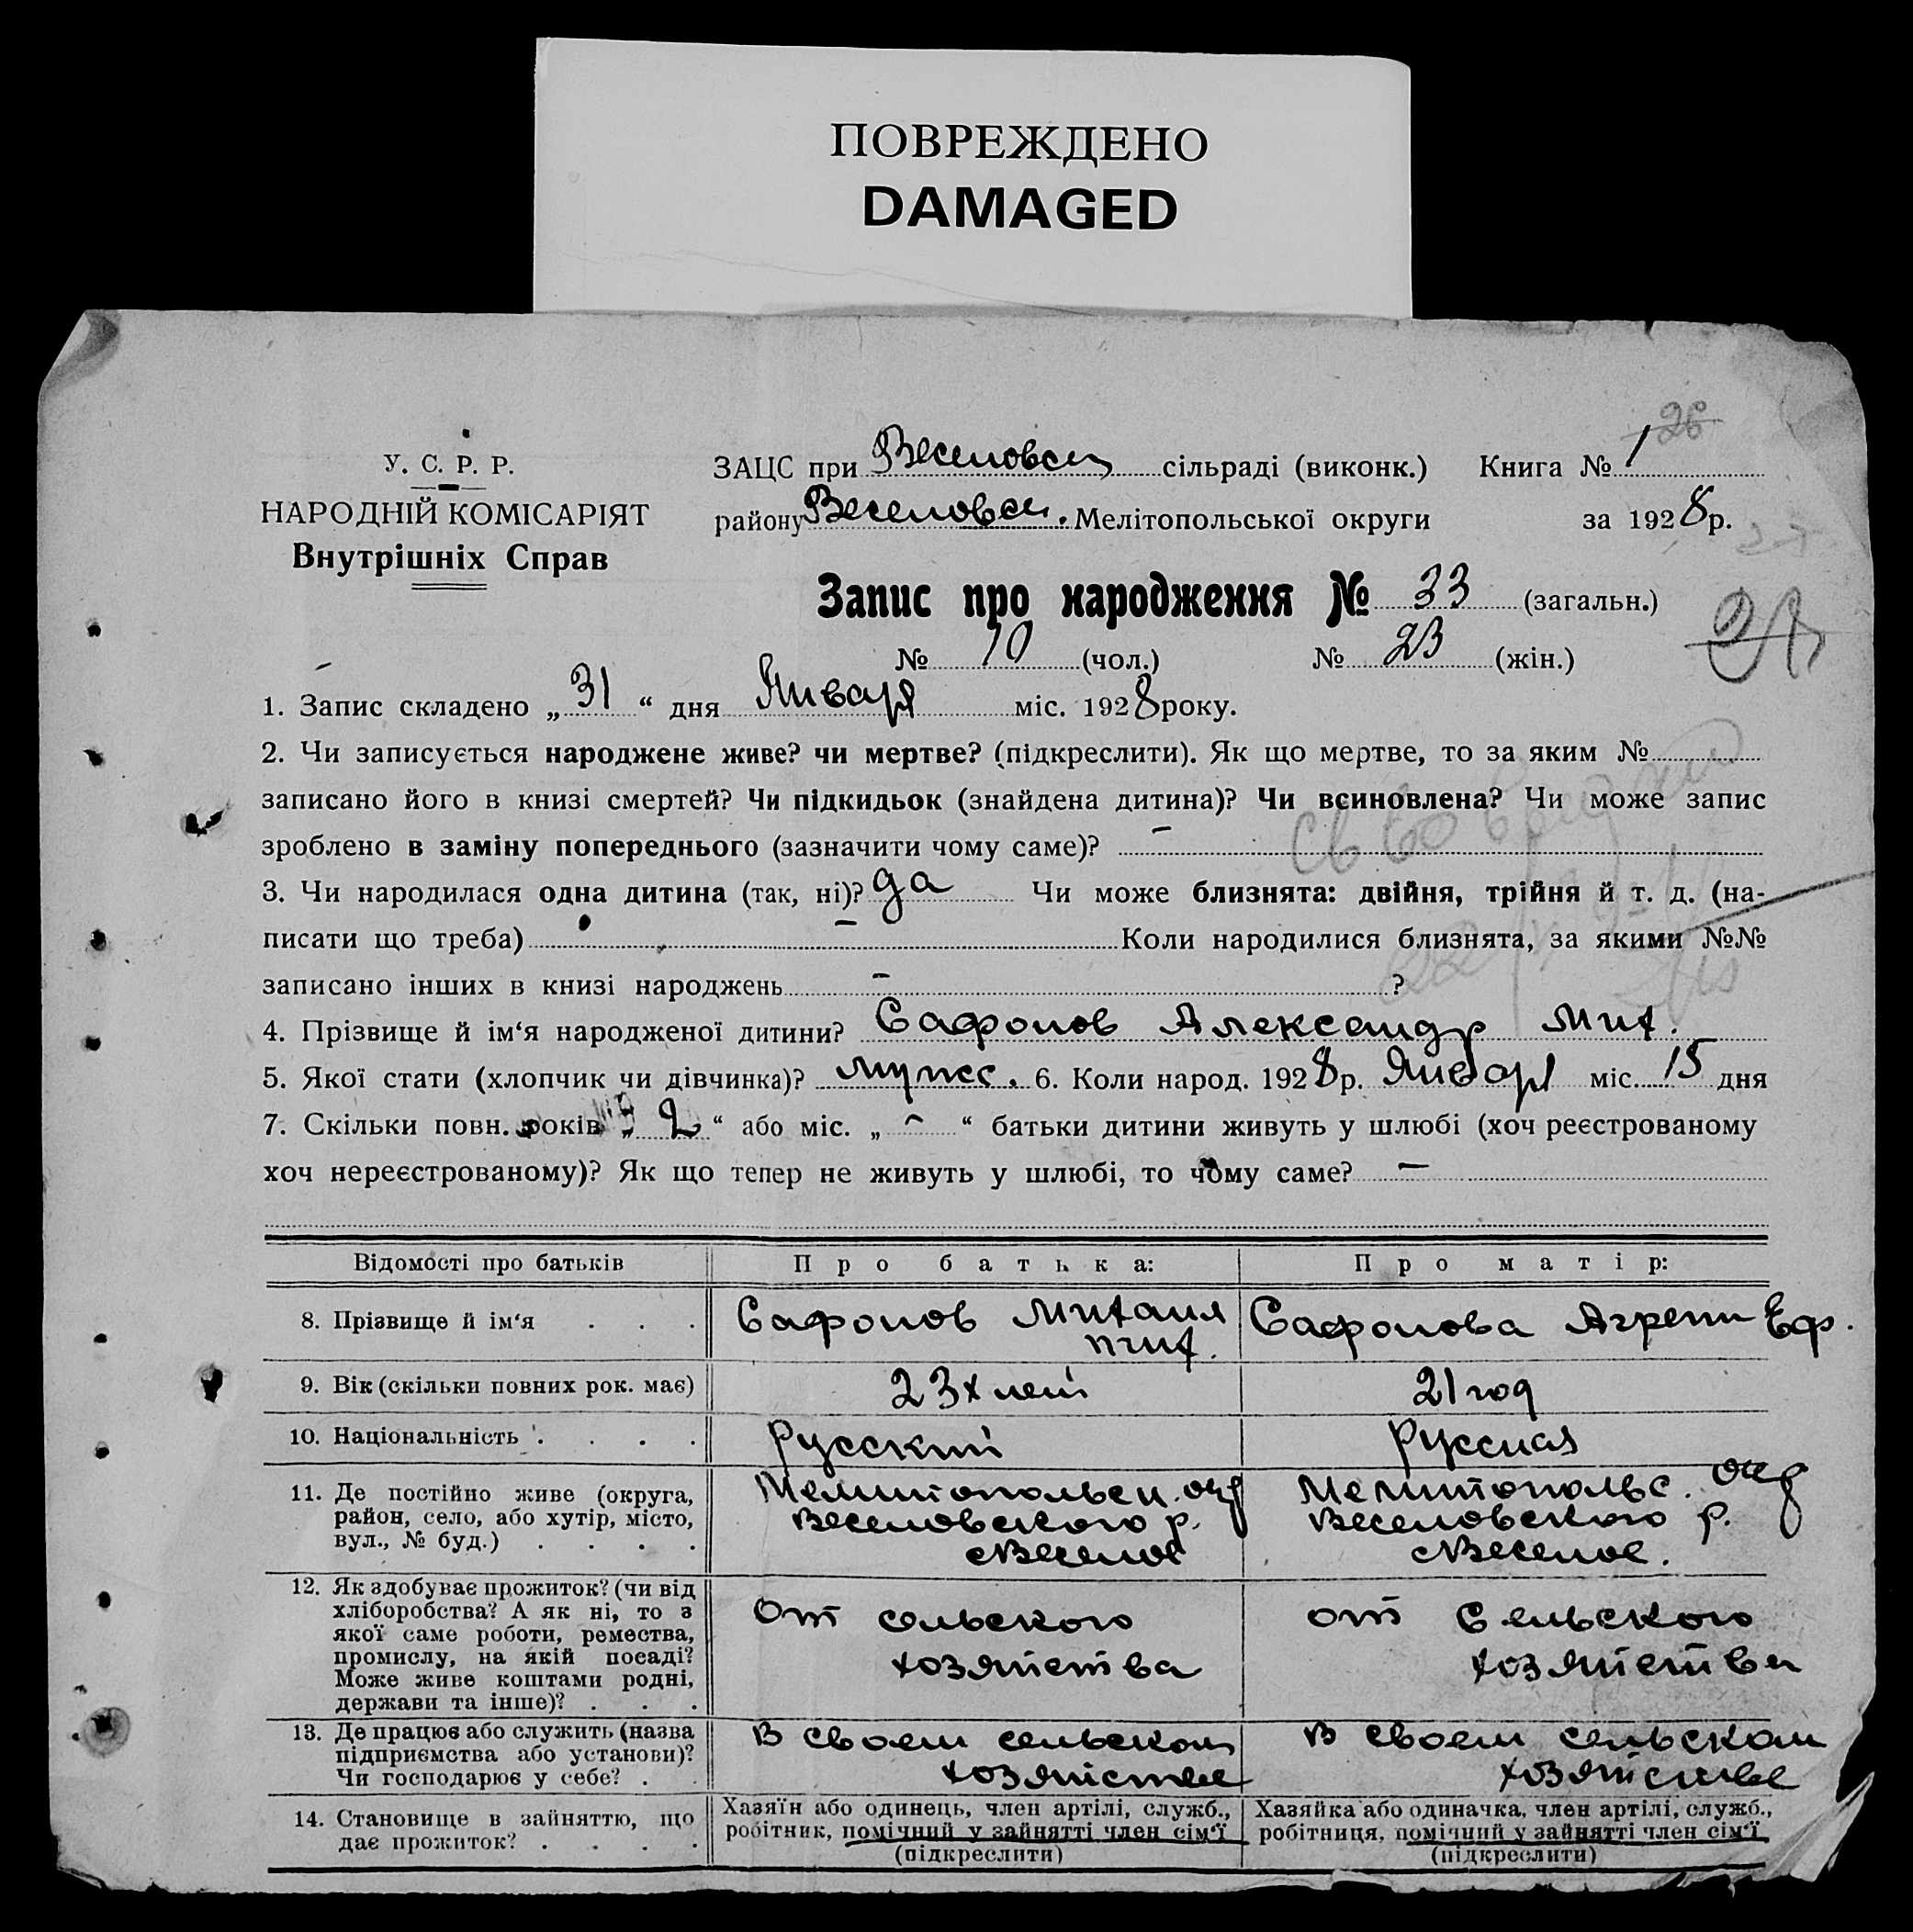 ПОВРЕЖДЕНО
DAMAGED
26
У. С. Р. Р.
НАРОДНІЙ КОМІСАРІЯТ
Внутрішніх Справ
ЗАЦС при Веселовск сільраді (виконк.) Книга № 1
району Веселовск. Мелітопольської округи за 1928р.
27
Запис про народження № 33 (загальн.)
№ 10 (чол.) № 23 (жін.)
1. Запис складено „ 31 “ дня Января міс. 1928 року.
2. Чи записується народжене живе? чи мертве? (підкреслити). Як що мертве, то за яким №
записано його в книзі смертей? Чи підкидьок (знайдена дитина)? Чи всиновлена? Чи може запис
зроблено в заміну попереднього (зазначити чому саме)? –
3. Чи народилася одна дитина (так, ні)? да Чи може близнята: двійня, трійня й т. д. (на-
писати що треба) – Коли народилися близнята, за якими №№
записано інших в книзі народжень – ?
4. Прізвище й ім‘я народженої дитини? Сафонов Александр Мих.
5. Якої стати (хлопчик чи дівчинка)? мужс. 6. Коли народ. 1928р. Января міс. 15 дня
7. Скільки повн. років „ 2 “ або міс. „ – “ батьки дитини живуть у шлюбі (хоч реєстрованому
хоч нереєстрованому)? Як що тепер не живуть у шлюбі, то чому саме? –
Відомості про батьків Про батька: Про матір:
8. Прізвище й ім‘я . . . Сафонов Михаил Сафонова Агрепи Еф.
9. Вік (скільки повних рок. має) 23х лет 21 год
10. Національність . . . . Русский Русская
11. Де постійно живе (округа,
район, село, або хутір, місто,
вул., № буд.) . . . .
Мелитопольск. окр
Веселовского р.
с Веселое
Мелитопольс. окр
Веселовского р.
с Веселое.
12. Як здобуває прожиток? (чи від
хліборобства? А як ні, то з
якої саме роботи, ремества,
промислу, на якій посаді?
Може живе коштами родні,
держави та інше)? . . .
От сельского
хозяйства
от Сельского
хозяйства
13. Де працює або служить (назва
підприємства або установи)?
Чи господарює у себе? . .
В своем сельском
хозяйстве
В своем сельском
хозяйстве
14. Становище в зайняттю, що
дає прожиток? . . . .
Хазяїн або одинець, член артілі, служб.,
робітник, помічний у зайнятті член сім‘ї
(підкреслити)
Хазяйка або одиначка, член артілі, служб.,
робітниця, помічний у зайнятті член сім‘ї
(підкреслити)